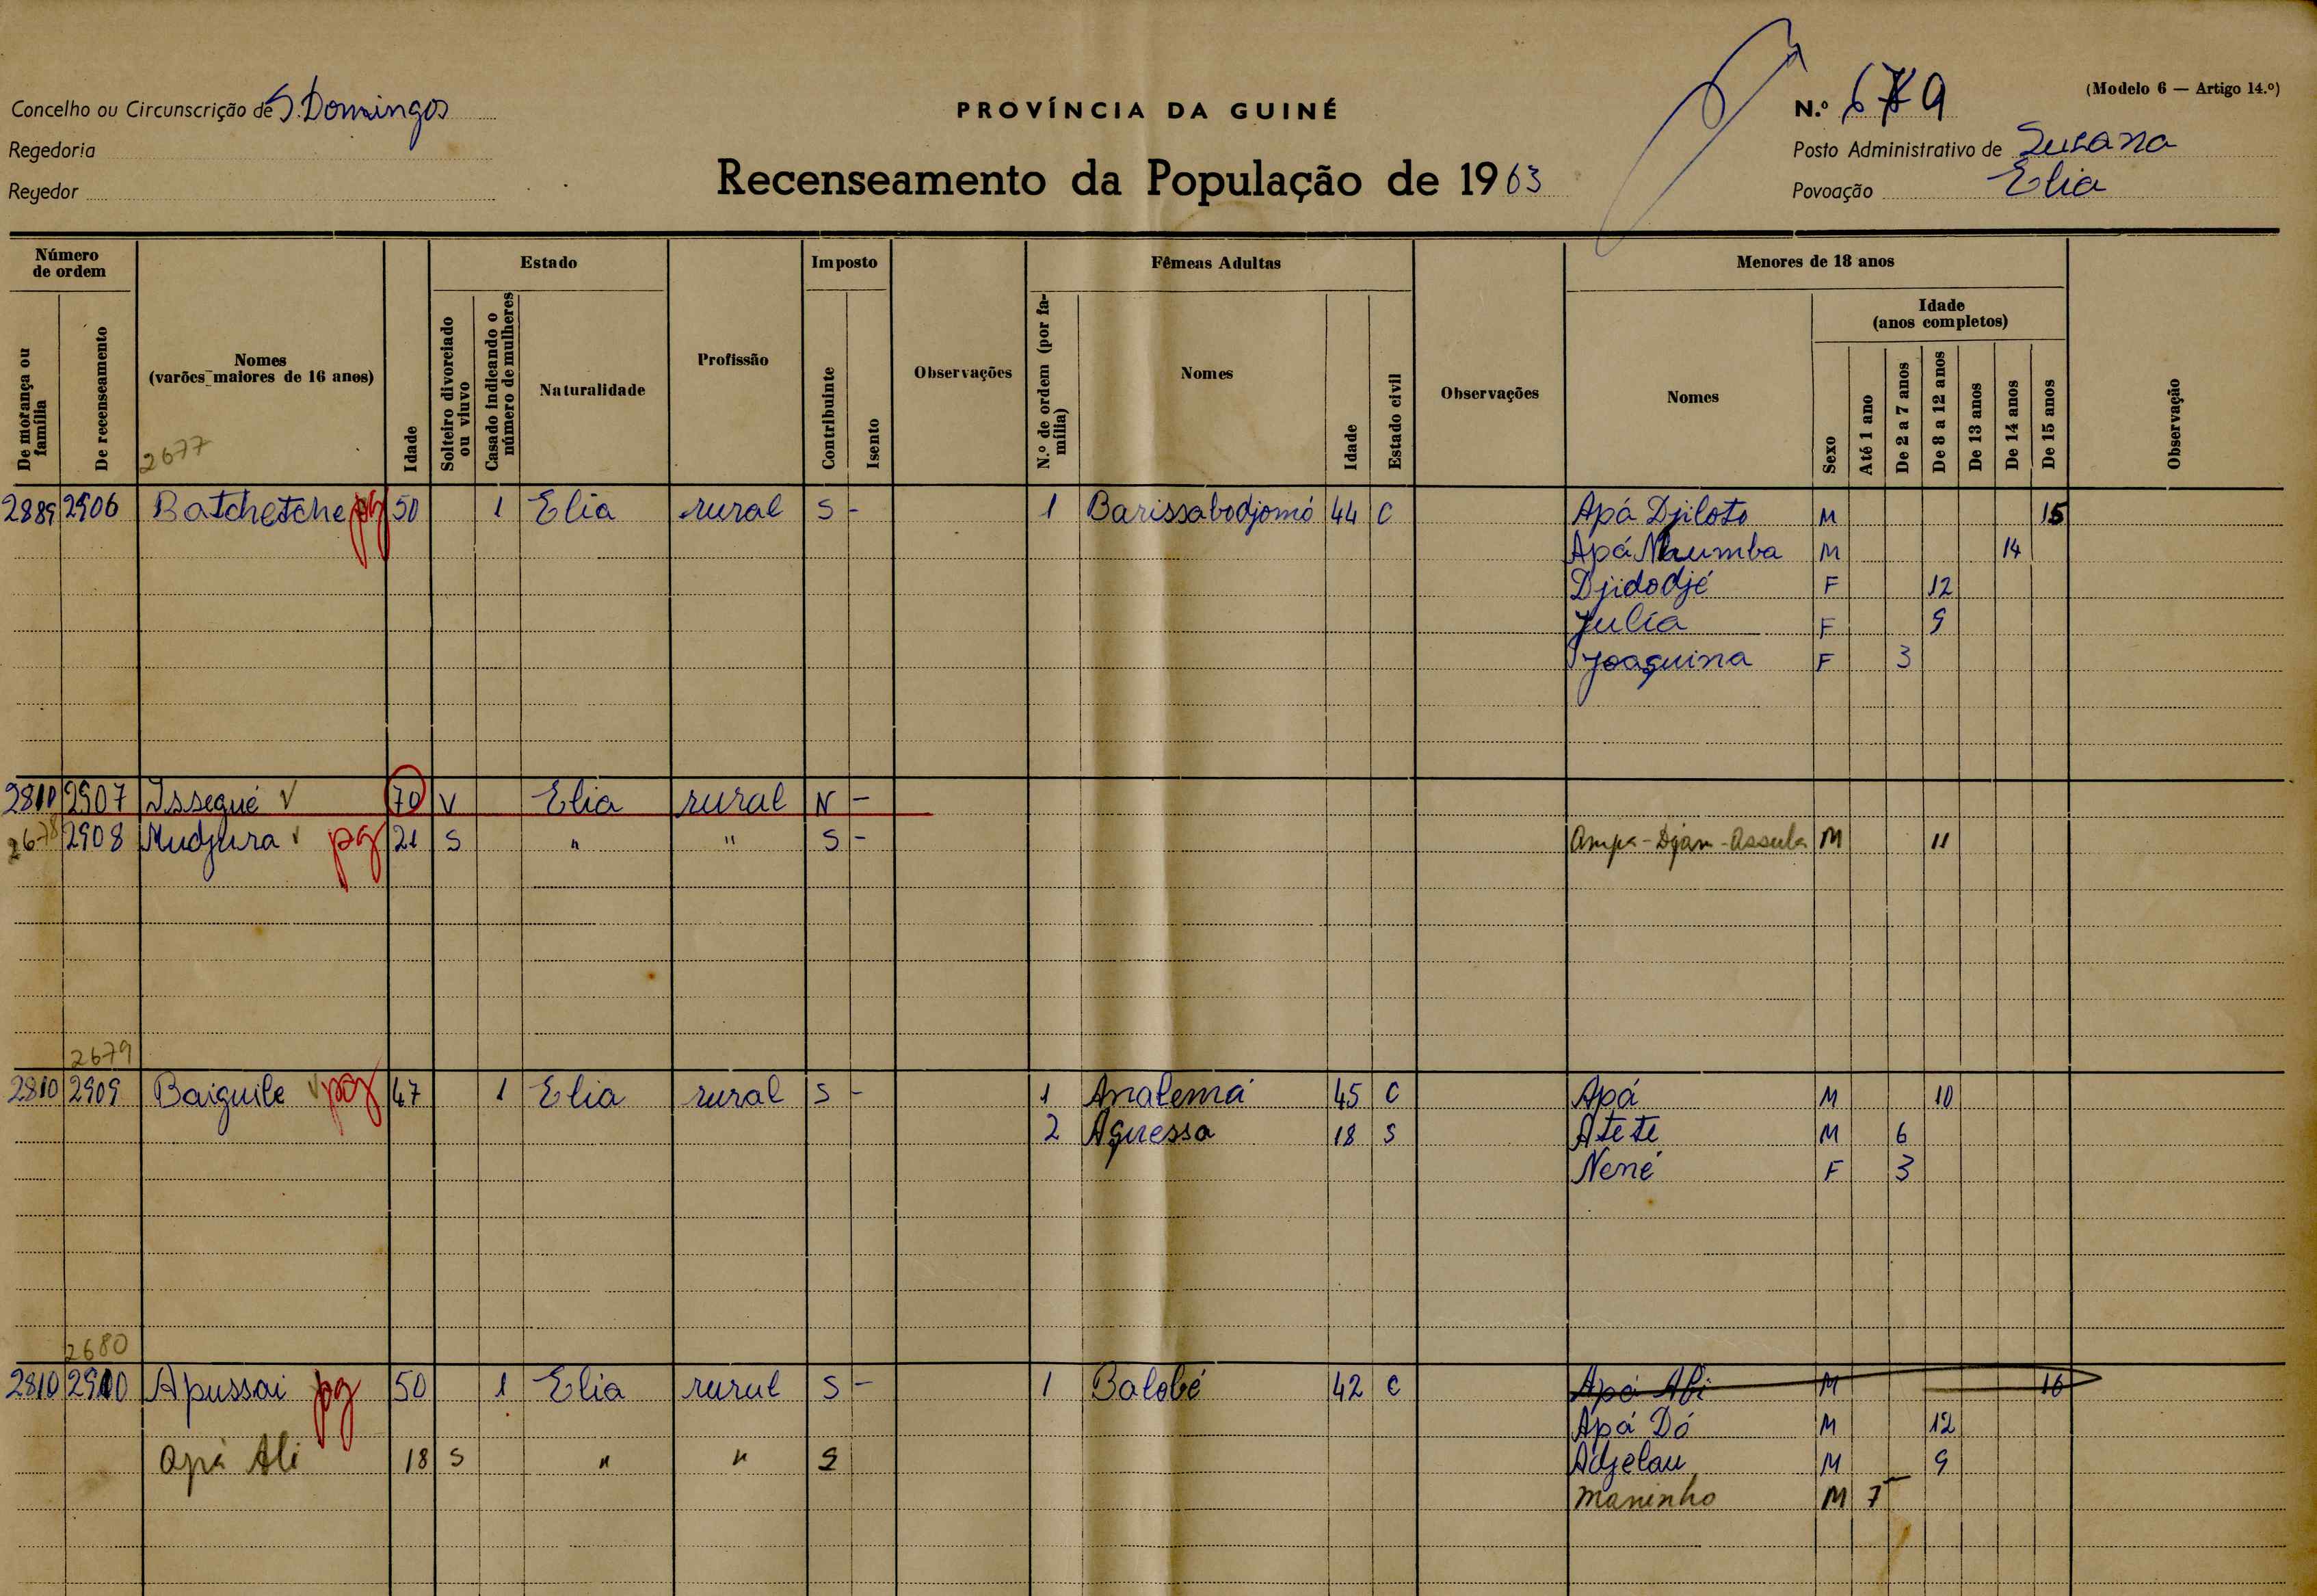 (Modelo 6 — Artigo 14.º)
Concelho ou Circunscrição de S. Domingos
PROVÍNCIA DA GUINÉ
N.º 679
Regedoria
Posto Administrativo de Susana
Regedor
Recenseamento da População de 1963
Povoação Elia
Número de ordem
Estado
Imposto
Fêmeas Adultas
Menores de 18 anos
De morança ou família
De recenseamento
Nomes
(varões maiores de 16 anos)
2677
Idade
Solteiro divorciado ou viuvo
Casado indicando o número de mulheres
Naturalidade
Profissão
Contribuinte
Isento
Observações
N.º de ordem (por família)
Nomes
Idade
Estado civil
Observações
Nomes
Sexo
Idade
(anos completos)
Até 1 ano
De 2 a 7 anos
De 8 a 12 anos
De 13 anos
De 14 anos
De 15 anos
Observação
2889 2906 Batchetche pg 50 1 Elia rural S - 1 Barissabodjomó 44 C Apá Djiloto M 15
Apá Nhumba M 14
Djidodjé F 12
Julia F 9
Joaquina F 3
2810 2907 Issegué V 70 V Elia rural N -
2678 2908 Mudjura v pg 21 S " " S - Ampa-Djam-Assula M 11
2679
2810 2909 Baiguile v pg 47 1 Elia rural S - 1 Analemá 45 C Apá M 10
2 Aguessa 18 S Atete M 6
Nené F 3
2680
2810 2910 Apussai pg 50 1 Elia rurul S - 1 Balobé 42 C Apá Ali M 16
Apá Dó M 12
Apá Ali 18 S " " S Adjelau M 9
Maninho M 7